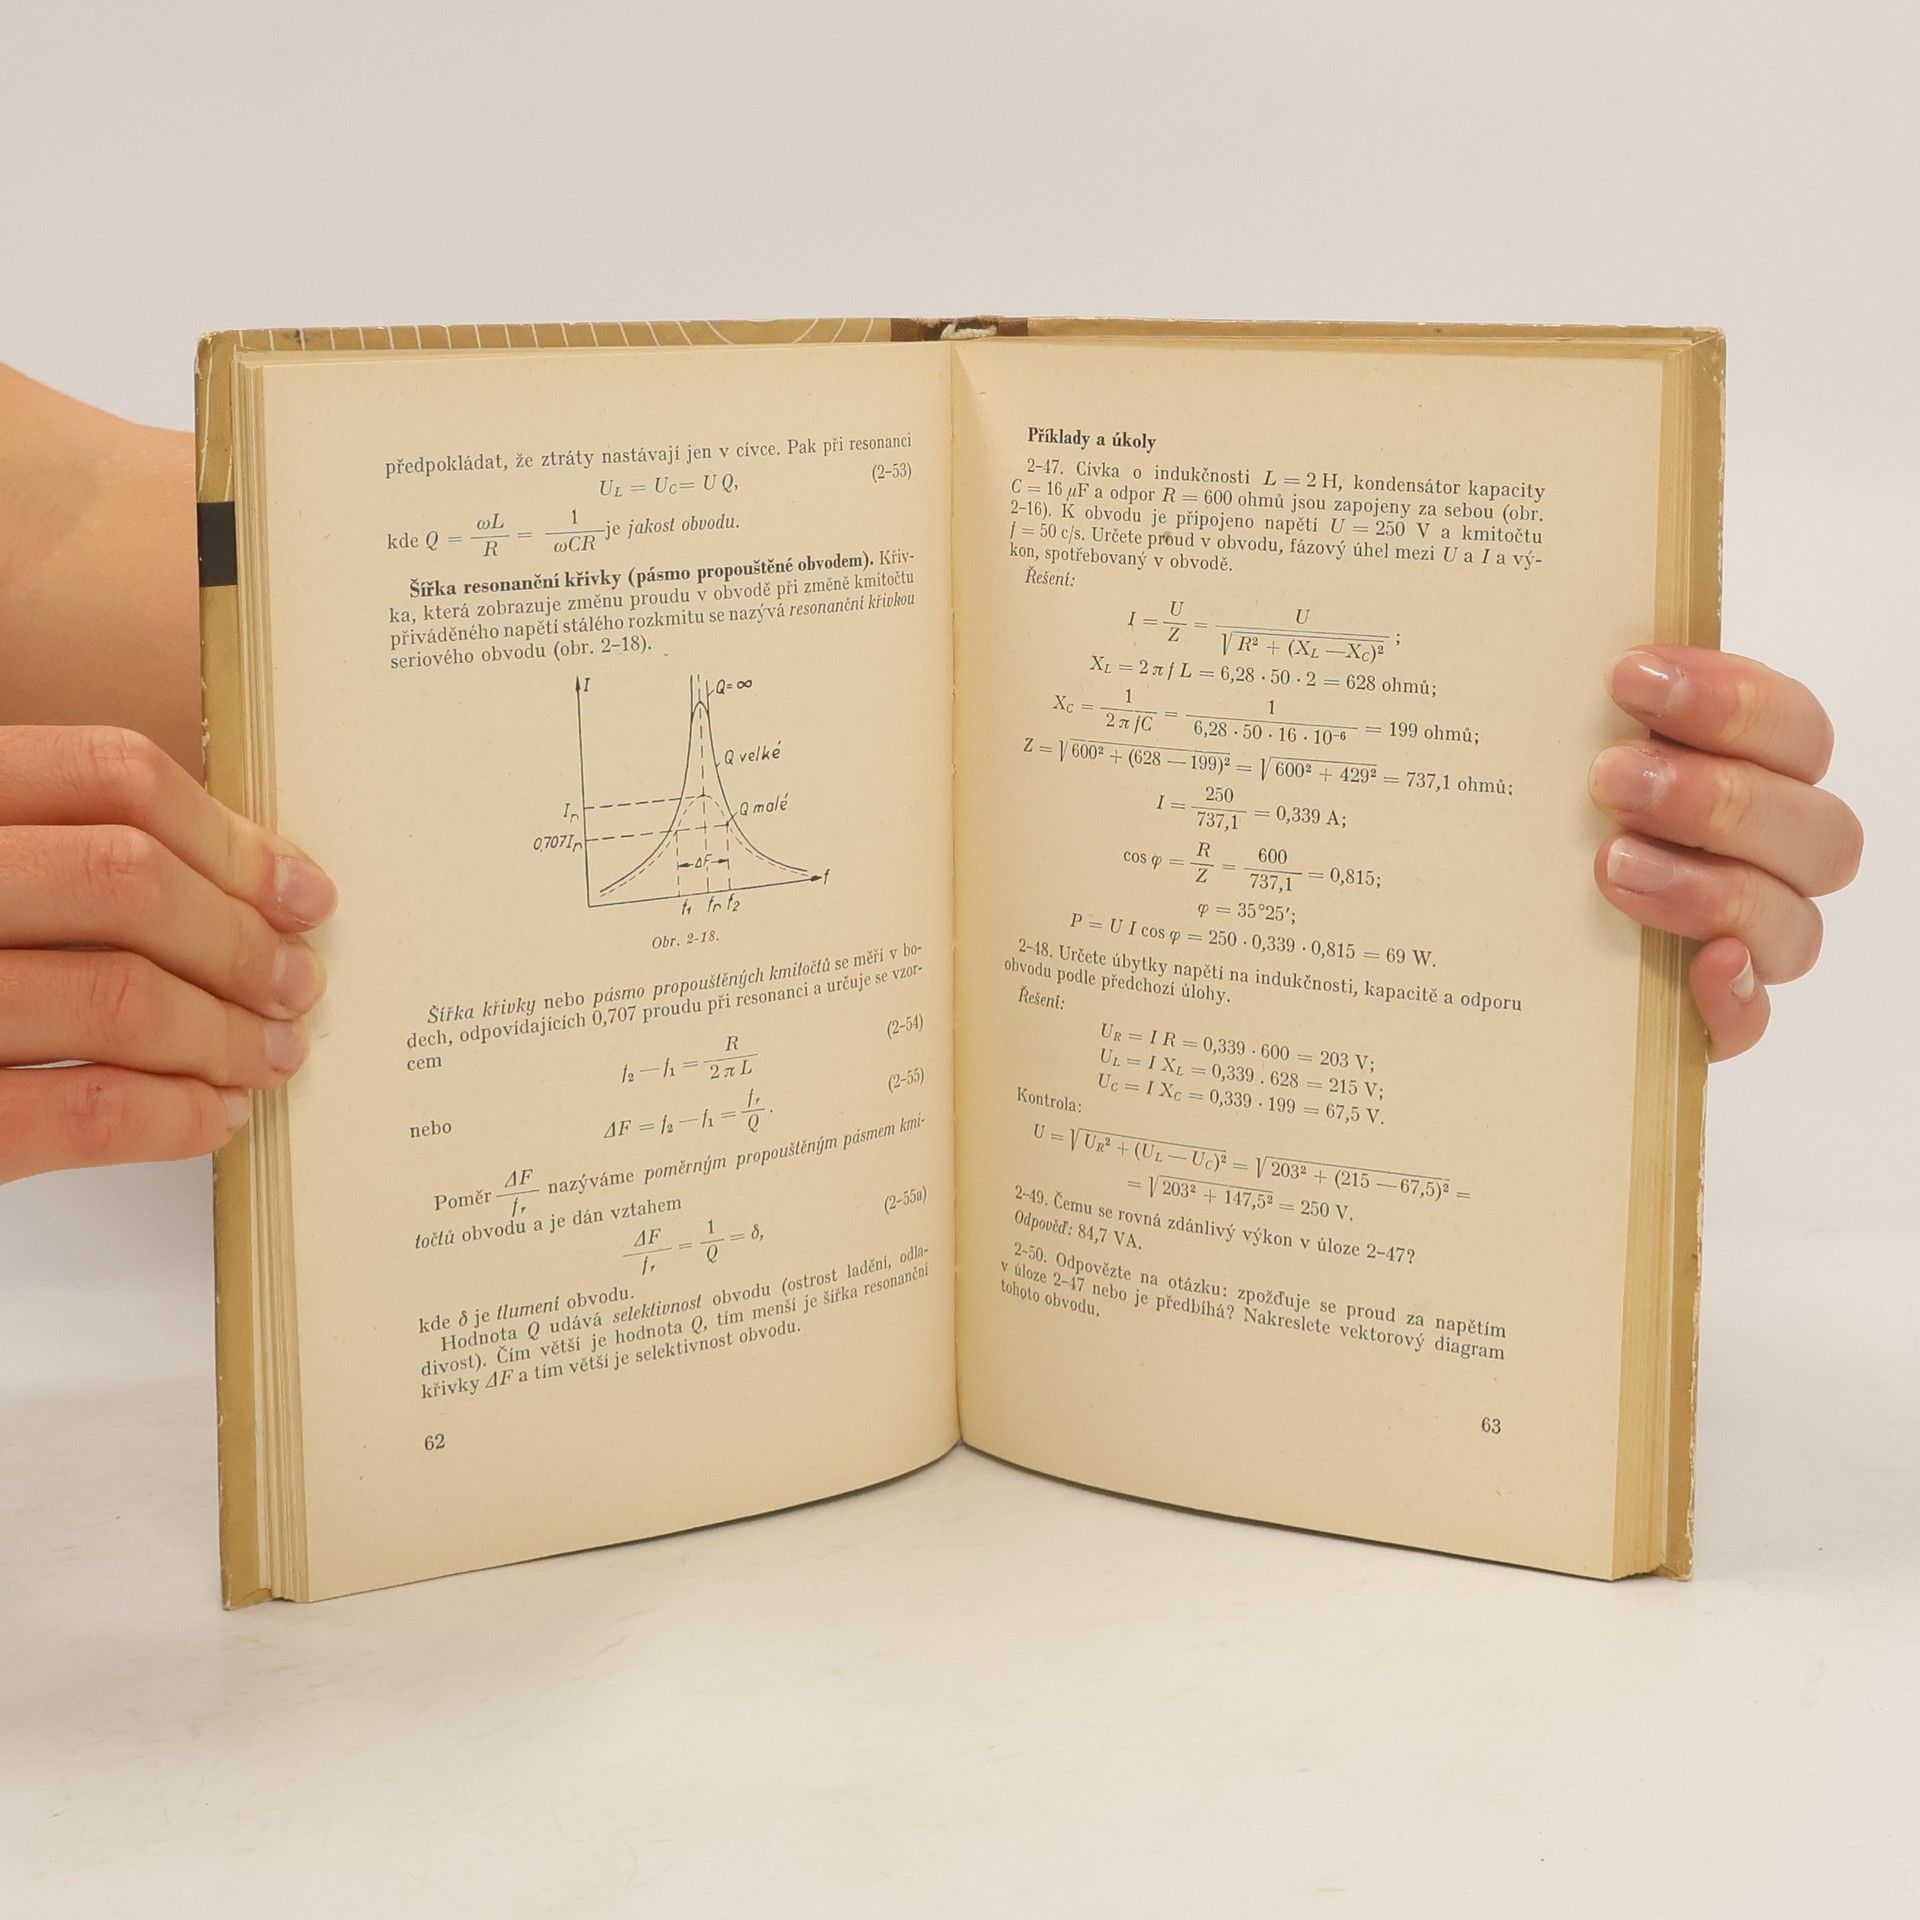 předpokládat, že ztráty nastávají jen v cívce. Pak při resonanci
U_L = U_C = U Q, (2-53)
kde Q = ωL/R = 1/ωCR je jakost obvodu.
Šířka resonanční křivky (pásmo propouštěné obvodem). Křiv-
ka, která zobrazuje změnu proudu v obvodě při změně kmitočtu
přiváděného napětí stálého rozkmitu se nazývá resonanční křivkou
seriového obvodu (obr. 2-18).
I
Q=∞
Q velké
Q malé
I_r
0,707I_r
ΔF
f
f₁ f_r f₂
Obr. 2-18.
Šířka křivky nebo pásmo propouštěných kmitočtů se měří v bo-
dech, odpovídajících 0,707 proudu při resonanci a určuje se vzor-
cem
f₂ — f₁ = R/2 π L (2-54)
nebo ΔF = f₂ — f₁ = f_r/Q. (2-55)
Poměr ΔF/f_r nazýváme poměrným propouštěným pásmem kmi-
točtů obvodu a je dán vztahem
ΔF/f_r = 1/Q = δ, (2-55a)
kde δ je tlumení obvodu.
Hodnota Q udává selektivnost obvodu (ostrost ladění, odla-
divost). Čím větší je hodnota Q, tím menší je šířka resonanční
křivky ΔF a tím větší je selektivnost obvodu.
62
Příklady a úkoly
2-47. Cívka o indukčnosti L = 2 H, kondensátor kapacity
C = 16 μF a odpor R = 600 ohmů jsou zapojeny za sebou (obr.
2-16). K obvodu je připojeno napětí U = 250 V a kmitočtu
f = 50 c/s. Určete proud v obvodu, fázový úhel mezi U a I a vý-
kon, spotřebovaný v obvodě.
Řešení:
I = U/Z = U/√(R² + (X_L — X_C)²) ;
X_L = 2 π f L = 6,28 · 50 · 2 = 628 ohmů;
X_C = 1/2 π f C = 1/6,28 · 50 · 16 · 10⁻⁶ = 199 ohmů;
Z = √(600² + (628 — 199)²) = √(600² + 429²) = 737,1 ohmů;
I = 250/737,1 = 0,339 A;
cos φ = R/Z = 600/737,1 = 0,815;
φ = 35°25′;
P = U I cos φ = 250 · 0,339 · 0,815 = 69 W.
2-48. Určete úbytky napětí na indukčnosti, kapacitě a odporu
obvodu podle předchozí úlohy.
Řešení:
U_R = I R = 0,339 · 600 = 203 V;
U_L = I X_L = 0,339 . 628 = 215 V;
U_C = I X_C = 0,339 · 199 = 67,5 V.
Kontrola:
U = √(U_R² + (U_L — U_C)²) = √(203² + (215 — 67,5)²) =
= √(203² + 147,5²) = 250 V.
2-49. Čemu se rovná zdánlivý výkon v úloze 2-47?
Odpověď: 84,7 VA.
2-50. Odpovězte na otázku: zpožďuje se proud za napětím
v úloze 2-47 nebo je předbíhá? Nakreslete vektorový diagram
tohoto obvodu.
63